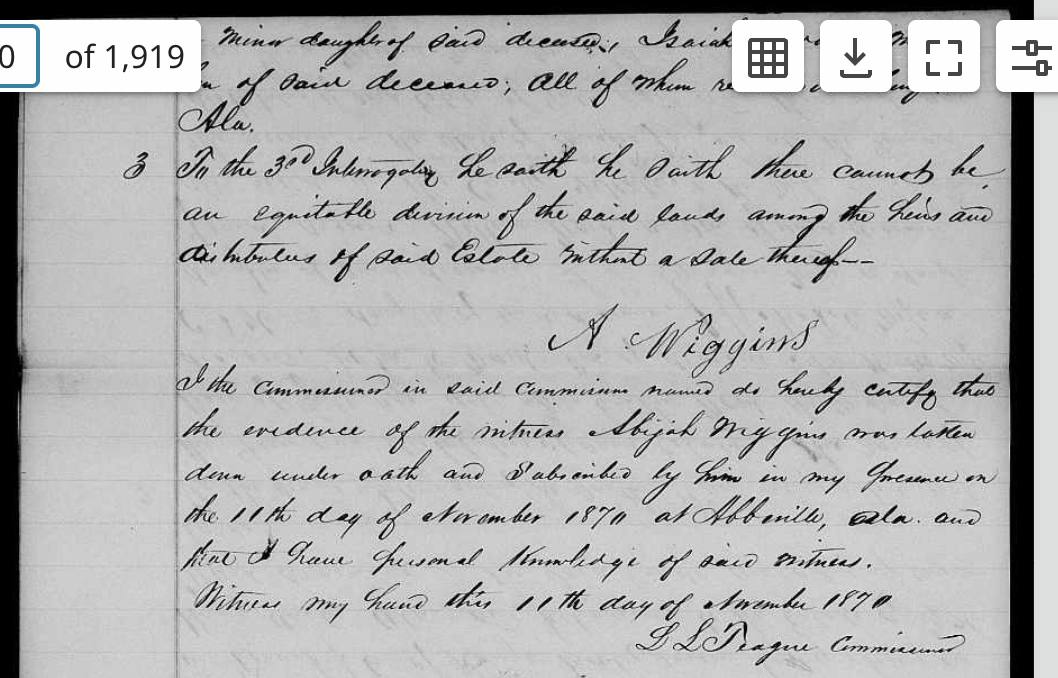 0 of 1,919
minor daughter of said deceased; Isaiah
of said deceased; All of whom
Ala.
3 To the 3rd Interrogatory he saith he saith there cannot be
an equitable division of the said lands among the heirs and
distributees of said Estate without a sale thereof--
A Wiggins
I the commissioned in said commission named do hereby certify that
the evidence of the witness Abijah Wiggins was taken
down under oath and Subscribed by him in my presence on
the 11th day of November 1870 at Abbeville, Ala. and
that I have personal Knowledge of said witness.
Witness my hand this 11th day of November 1870
L L Teague Commissioned